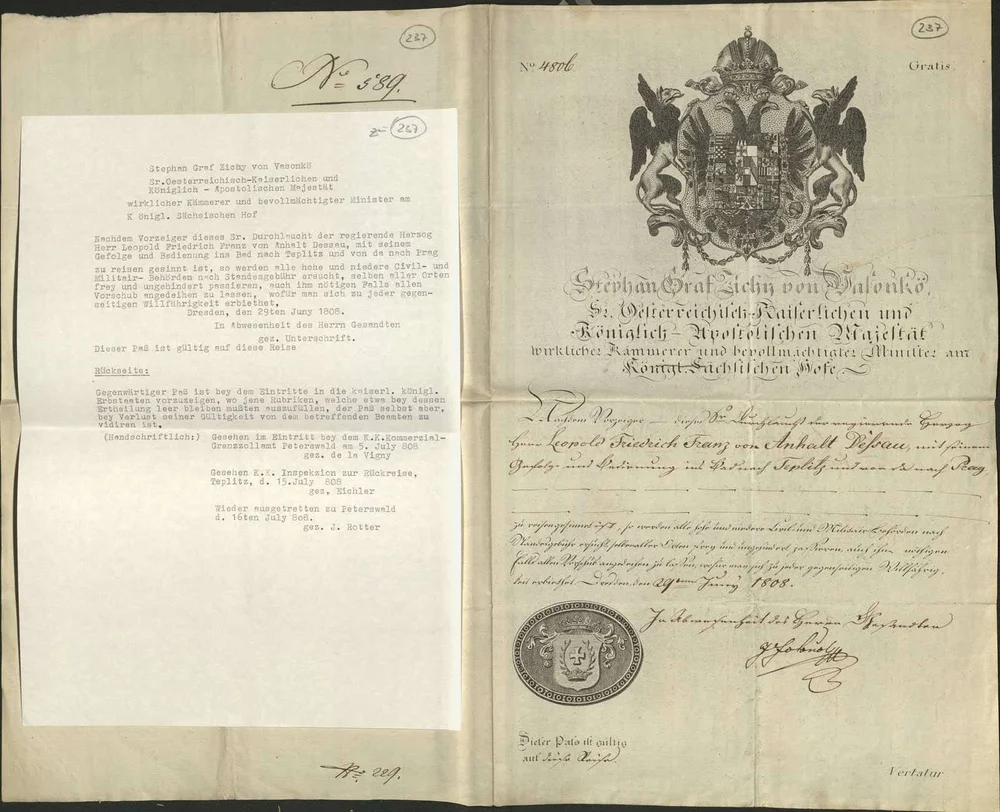 237
No 589.
z= 237
Stephan Graf Zichy von Vasonkö
Sr.Oesterreichisch-Kaiserlichen und
Königlich - Apostolischen Majestät
wirklicher Kämmerer und bevollmächtigter Minister am
K önigl. Sächsischen Hof
Nachdem Vorzeiger dieses Sr. Durchlaucht der regierende Herzog
Herr Leopold Friedrich Franz von Anhalt Dessau, mit seinem
Gefolge und Bedienung ins Bad nach Teplitz und von da nach Prag
zu reisen gesinnt ist, so werden alle hohe und niedere Civil- und
Militair- Behörden nach Standesgebühr ersucht, selben aller Orten
frey und ungehindert passieren, auch ihm nötigen Falls allen
Vorschub angedeihen zu lassen, wofür man sich zu jeder gegen-
seitigen Willfährigkeit erbiethet.
Dresden, den 29ten Juny 1808.
In Abwesenheit des Herrn Gesandten
gez. Unterschrift.
Dieser Paß ist gültig auf diese Reise
Rückseite:
Gegenwärtiger Paß ist bey dem Eintritte in die kaiserl. königl.
Erbstaaten vorzuzeigen, wo jene Rubriken, welche etwa bey dessen
Ertheilung leer bleiben mußten auszufüllen, der Paß selbst aber,
bey Verlust seiner Gültigkeit von dem betreffenden Beamten zu
vidiren ist.
(Handschriftlich:) Gesehen im Eintritt bey dem K.K.Kommerzial-
Grenzzollamt Peterswald am 5. July 808
gez. de la Vigny
Gesehen K.K. Inspekzion zur Rückreise,
Teplitz, d. 15.July 808
gez, Eichler
Wieder ausgetretten zu Peterswald
d. 16ten July 808.
gez. J. Rotter
No. 229.
237
No 4806
Gratis
Stephan Graf Zichy von Vasonkö,
Sr. Oesterreichisch-Kaiserlichen und
Königlich-Apostolischen Majestät
wirklicher Kämmerer und bevollmächtigter Minister am
Königl. Sächsischen Hofe.
Nachdem Vorzeiger dieses Sr. Durchlaucht der regierende Herzog
Herr Leopold Friedrich Franz von Anhalt Dessau, mit seinem
Gefolge und Bedienung ins Bad nach Teplitz und von da nach Prag
zu reisen gesinnet ist, so werden alle hohe und niedere Civil- und Militair Behörden nach
Standesgebühr ersucht, selben aller Orten frey und ungehindert passieren, auch ihm nöthigen
Falls allen Vorschub angedeihen zu lassen, wofür man sich zu jeder gegenseitigen Willfährig-
keit erbiethet. Dresden, den 29ten Juny 1808.
In Abwesenheit des Herrn Gesandten
Dieser Pass ist gültig
auf diese Reise.
Vertatur